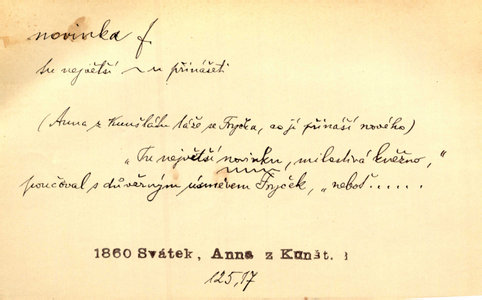 novinka f
tu největší ~ u přinášeti
(Anna z Kunštátu táže se Fryčka, co jí přináší nového)
„Tu největší novinku, milostivá kněžno,"
poučoval s důvěrným úsměvem Fryček, „neboť......
1860 Svátek, Anna z Kunšt.
125,17